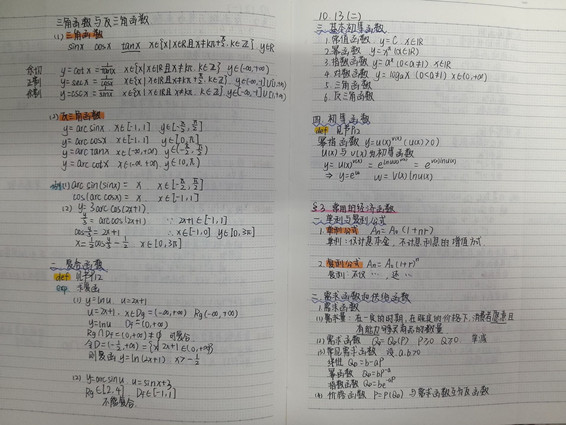 三角函数与反三角函数
(1) 三角函数
sinx cosx tanx x∈{x|x∈R且x≠kπ+π/2, k∈Z} y∈R
余切 y=cotx=1/tanx x∈{x|x∈R且x≠kπ, k∈Z} y∈(-∞,+∞)
正割 y=secx=1/cosx x∈{x|x∈R且x≠kπ+π/2, k∈Z} y∈(-∞,-1]∪[1,+∞)
余割 y=cscx=1/sinx x∈{x|x∈R且x≠kπ, k∈Z} y∈(-∞,-1]∪[1,+∞)
(2) 反三角函数
y=arcsinx x∈[-1,1] y∈[-π/2,π/2]
y=arccosx x∈[-1,1] y∈[0,π]
y=arctanx x∈(-∞,+∞) y∈(-π/2,π/2)
y=arccotx x∈(-∞,+∞) y∈(0,π)
(1) arcsin(sinx)=x x∈[-π/2,π/2]
cos(arccosx)=x x∈[-1,1]
(2) y=3arccos(2x+1)
y/3=arccos(2x+1) ∵2x+1∈[-1,1]
cos y/3=2x+1 ∴x∈[-1,0] y∈[0,3π]
x=1/2cos x/3-1/2 x∈[0,3π]
二. 复合函数
def 见书P12
exp. 求复合
(1) y=lnu, u=2x+1
u=2x+1, x∈Dg=(-∞,+∞) Rg(-∞,+∞)
y=lnu Df=(0,+∞)
Rg∩Df=(0,+∞)≠∅ 可复合
令D=(-1/2,+∞)={x|2x+1∈(0,+∞)}
则复合y=ln(2x+1) x>-1/2
(2) y=arcsinu, u=sinx+3
Rg∈[2,4] Df∈[-1,1]
不能复合
10.13(二)
三. 基本初等函数
1. 常值函数 y=C, x∈R
2. 幂函数 y=xᵅ (α∈R)
3. 指数函数 y=aˣ (0<a≠1) x∈R
4. 对数函数 y=logₐx (0<a≠1) x∈(0,+∞)
5. 三角函数
6. 反三角函数
四. 初等函数
def 见书P12
幂指函数 y=u(x)^v(x) (u(x)>0)
u(x)与v(x)为初等函数
y=u(x)^v(x)=e^lnu(x)^v(x)=e^v(x)lnu(x)
⇒ y=eʷ w=v(x)lnu(x)
§3. 常用的经济函数
一. 单利与复利公式
1. 单利公式 An=A₀(1+rn)
单利:仅计息本金,不计息利息的增值方式.
2. 复利公式 An=A₀(1+r)ⁿ
复利:不仅……, 还…
二. 需求函数和供给函数
1. 需求函数
(1) 需求量:在一定的时期,在既定的价格下,消费者愿意且
有能力购买商品的数量
(2) 需求函数 QD=QD(P), P≥0 Q≥0. 单减
(3) 常见需求函数 设 a,b>0
线性 QD=b-aP
幂函数 QD=bP⁻ᵃ
指数函数 QD=be⁻ᵃᴾ
(4) 价格函数 P=P(QD) 与需求函数互为反函数